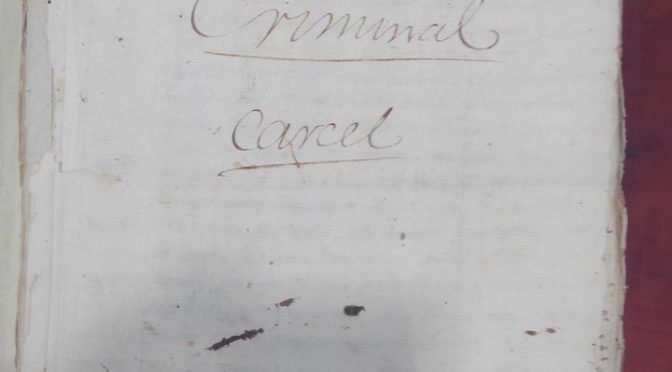 Criminal
Carcel